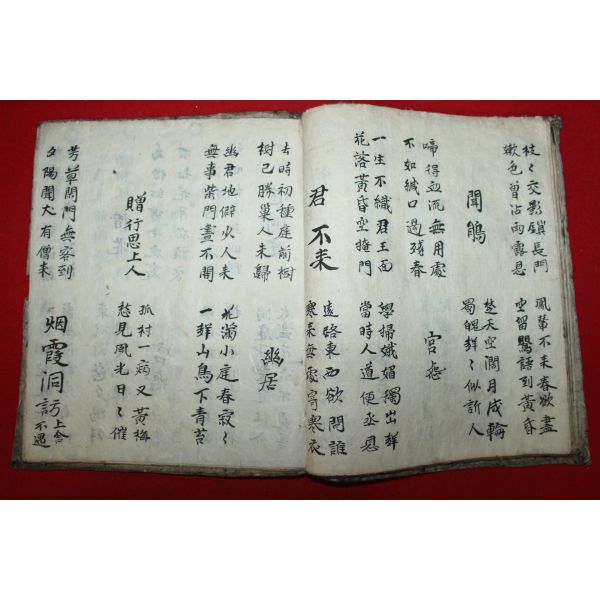 枝〻交影鎖長門
嫩色曾沾雨露恩
風輦不來春欲盡
空留鶯語到黃昏
聞鵑
楚天空濶月成輪
蜀魄聲〻似訴人
啼得血流無用處
不如緘口過殘春
宮怨
學掃娥媚獨出群
當時人道便承恩
一生不識君王面
花落黃昏空掩門
君不來
遠路東西欲問誰
寒來無處寄寒衣
去時初種庭前樹
樹已勝巢人未歸
幽居
幽居地僻少人來
無事柴門晝不開
花滿小庭春寂〻
一聲山鳥下青苔
贈行思上人
孤村一病又黃梅
愁見風光日〻催
芳草閉門無客到
夕陽聞犬有僧來
烟霞洞訪上舍不遇